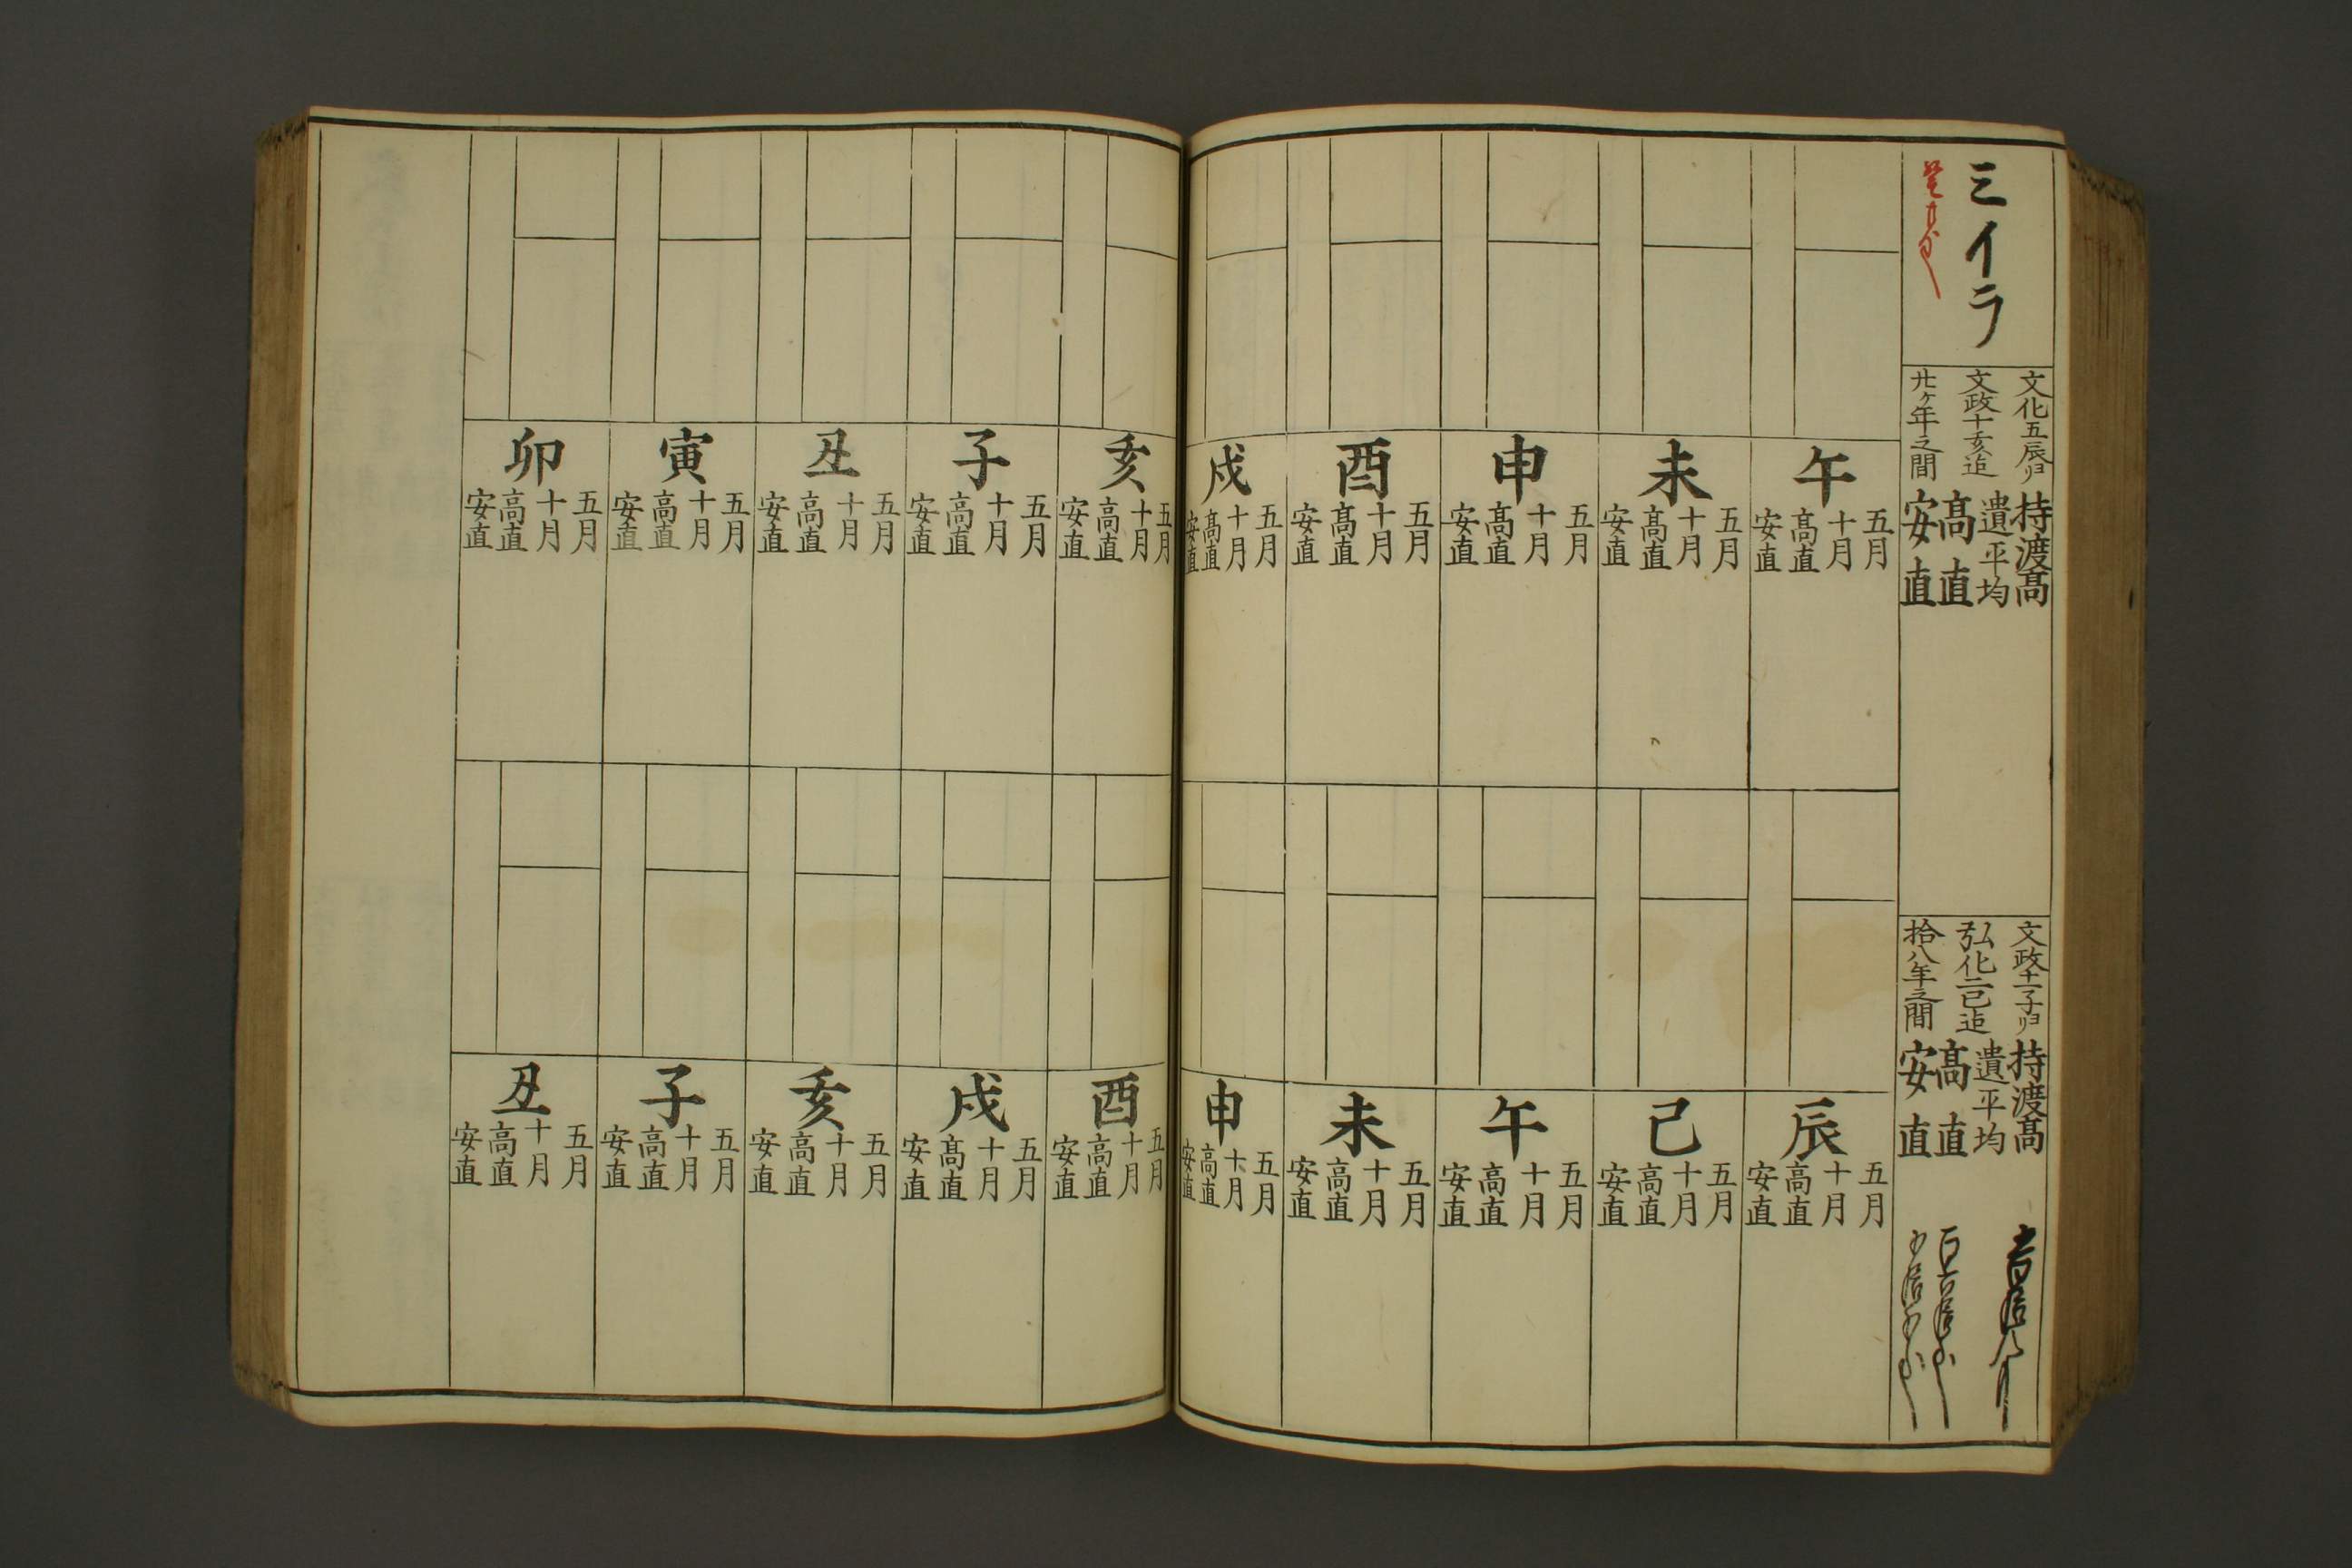 ミイラ
文化五辰ヨリ
文政十亥迄
廿ケ年之間
持渡高
遺平均
高直
安直
文政十一子ヨリ
弘化二巳迄
拾八年之間
持渡高
遺平均
高直
安直
午
五月
十月
高直
安直
未
五月
十月
高直
安直
申
五月
十月
高直
安直
酉
五月
十月
高直
安直
戌
五月
十月
高直
安直
亥
五月
十月
高直
安直
子
五月
十月
高直
安直
丑
五月
十月
高直
安直
寅
五月
十月
高直
安直
卯
五月
十月
高直
安直
辰
五月
十月
高直
安直
巳
五月
十月
高直
安直
午
五月
十月
高直
安直
未
五月
十月
高直
安直
申
五月
十月
高直
安直
酉
五月
十月
高直
安直
戌
五月
十月
高直
安直
亥
五月
十月
高直
安直
子
五月
十月
高直
安直
丑
五月
十月
高直
安直